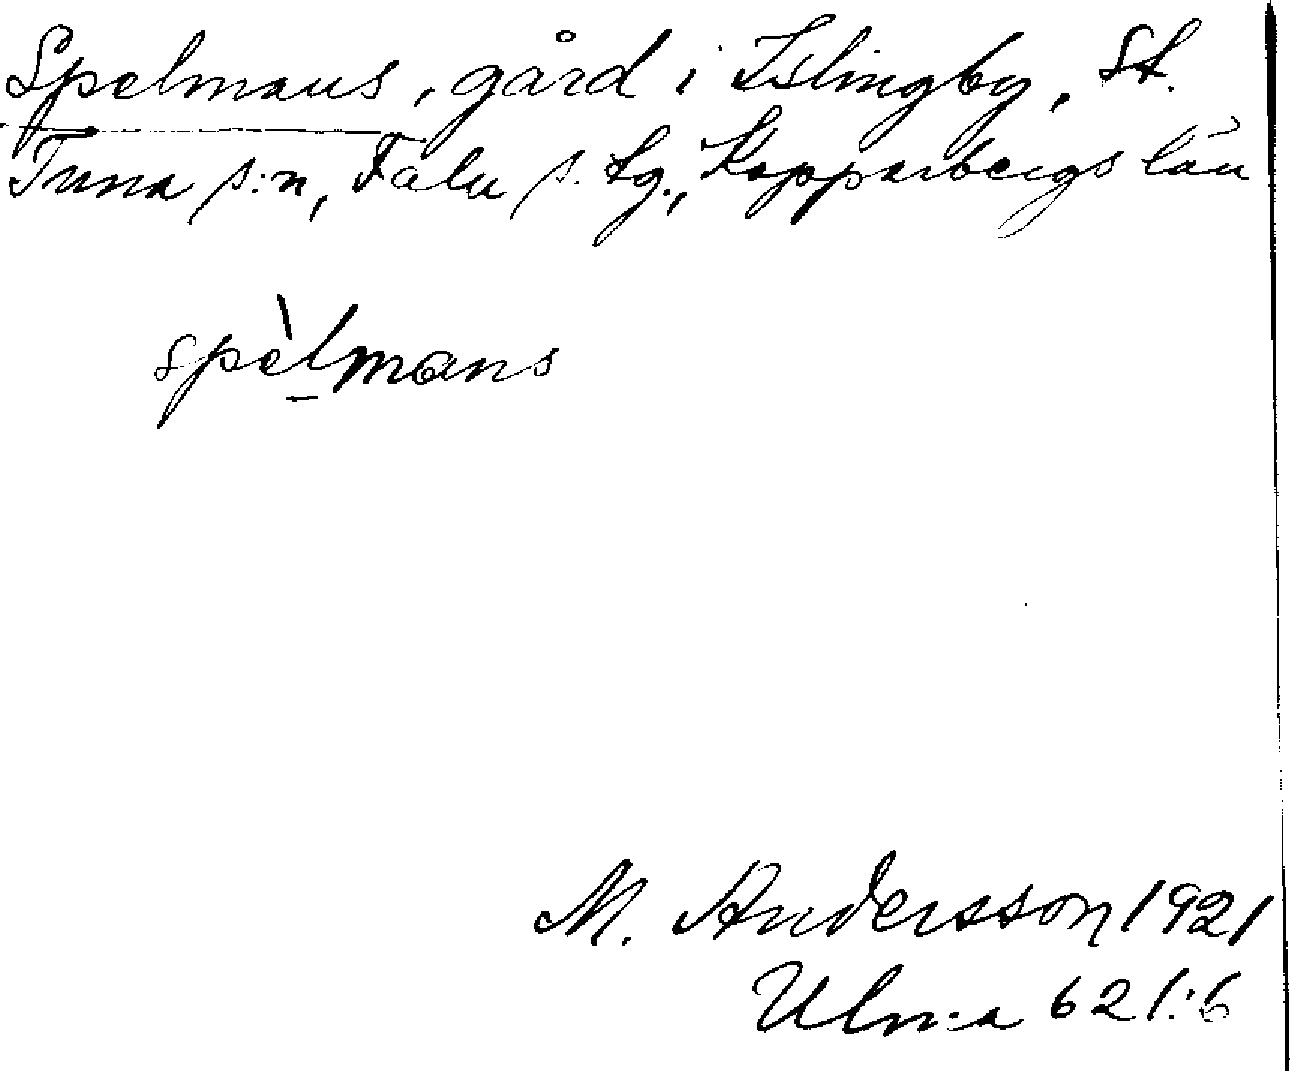 Spelmans, gård i Islingby, St.
Tuna s:n, Falu s. tg., Kopparbergs län
spèlmans
M. Andersson 1921
Ulm:a 621:6